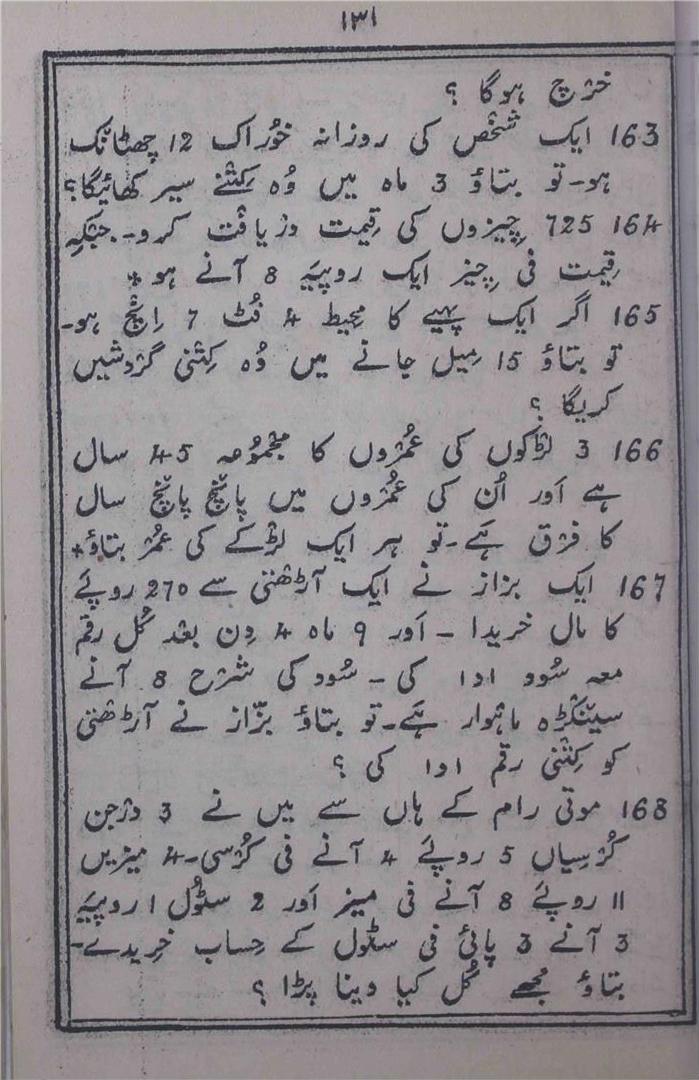 ۱۳۱
خرْچ ہوگا ؟
163 ایک شخْص کی روزانہ خوُراک 12 چھٹانْک
ہو۔ تو بتاؤ 3 ماہ میں وُہ کِتْنے سیر کھائیگا؟
164 725 چِیزوں کی قِیمت درْیافْت کرو۔ جبْکہِ
قِیمت فی چِیز ایک روپیَہ 8 آنے ہو٭
165 اگر ایک پہیے کا مُحِیط 4 فُٹ 7 اِنْچ ہو۔
تو بتاؤ 15 مِیل جانے میں وُہ کِتْنی گرْدشیں
کریگا ؟
166 3 لڑْکوں کی عُمْروں کا مجْمُوُعہ 45 سال
ہے اَور اُن کی عُمْروں میں پانْچ پانْچ سال
کا فرْق ہَے۔ تو ہر ایک لڑْکے کی عُمْر بتاؤ٭
167 ایک بزاز نے ایک آڑھْتی سے 270 روپَے
کا مال خریدا ۔ اَور 9 ماہ 4 دِن بعْد کُل رقم
معہ سُود ادا کی ۔ سُود کی شرْح 8 آنے
سینْکڑہ ماہوار ہَے۔ تو بتاؤ بزّاز نے آڑھْتی
کو کِتْنی رقم ادا کی ؟
168 موتی رام کے ہاں سے میں نے 3 درْجن
کُرْسیاں 5 روپَے 4 آنے فی کُرْسی۔ 4 میزیں
11 روپَے 8 آنے فی میز اَور 2 سٹُول 1 روپیَہ
3 آنے 3 پائی فی سٹول کے حِساب خرِیدے۔
بتاؤ مُجھے کُل کیا دینا پڑا ؟